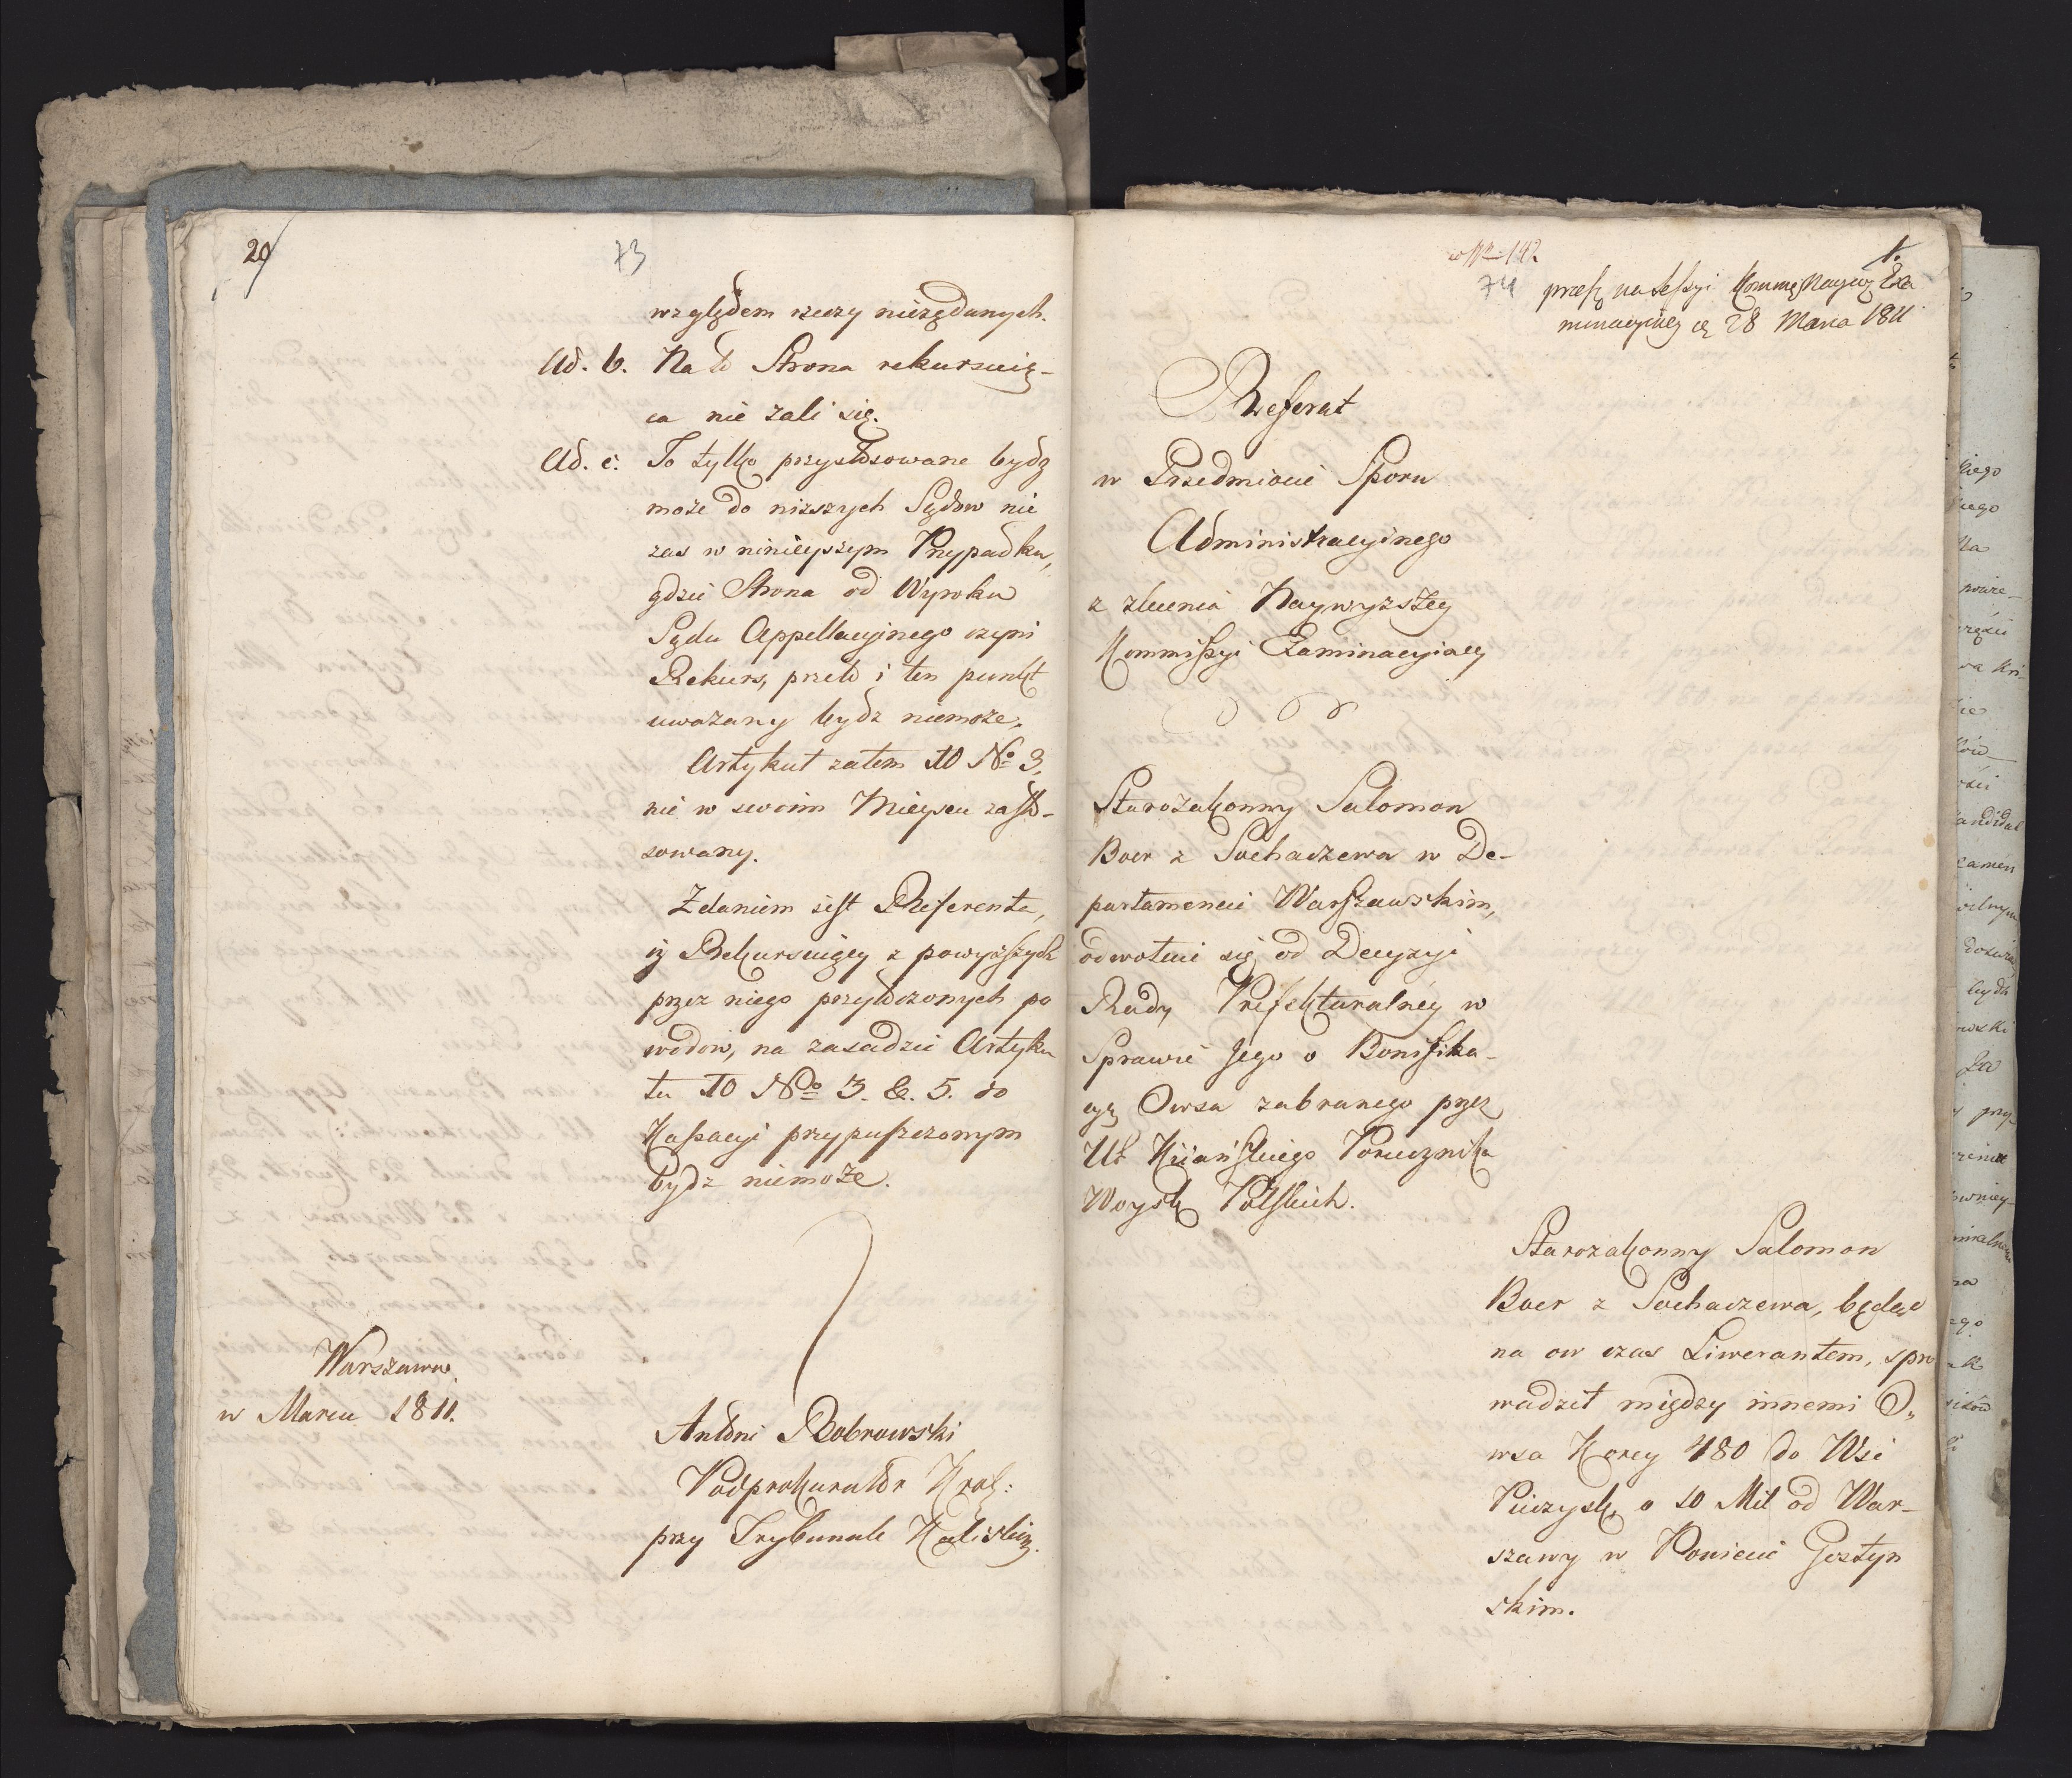 20
73
względem rzeczy nieżądanych.
Ad. b. Na to Strona rekursuią-
ca nie żali się.
Ad. c. To tylko przystosowane bydz
może do niższych Sądow nie
zas w ninieyszym Przypadku,
gdzie Strona od Wyroku
Sądu Appellacyinego czyni
Rekurs, przeto i ten punkt
uważany bydz niemoże.
Artykuł zatem 10 No 3,
nie w swoim Mieyscu zasto-
sowany.
Zdaniem iest Referenta,
iż Rekursuiący z powyższych
przez niego przytoczonych po
wodow, na zasadzie Artyku
łu 10 No 3. & 5. do
Kassacyi przypuszczonym
bydz niemoże.
Warszawa
w Marcu 1811.
Antoni Bobrowski
Podprokurator Krol:
przy Trybunale Kaliskim.
No 142
1.
74
na Sessyi Kommis Naywyż Exa
minacyiney 28 Marca 1811
Referat
w Przedmiocie Sporu
Administracyinego
z zlecenia Naywyższey
Kommissyi Examinacyiney
Starozakonny Salomon
Boer z Sochaczewa w De-
partamencie Warszawskim,
odwołuie się od Decyzyi
Rady Prefekturalney w
Sprawie Jego o Bonifika-
cyą Owsa zabranego przez
Ur Kiiańskiego Porucznika
Woysk Polskich.
Starozakonny Salomon
Boer z Sochaczewa, będąc
na ow czas Liwerantem, spro
wadził między innemi O,,
wsa Korcy 480 do Wsi
o 10 Mil od War-
szawy w Powiecie Gostyn
skim.